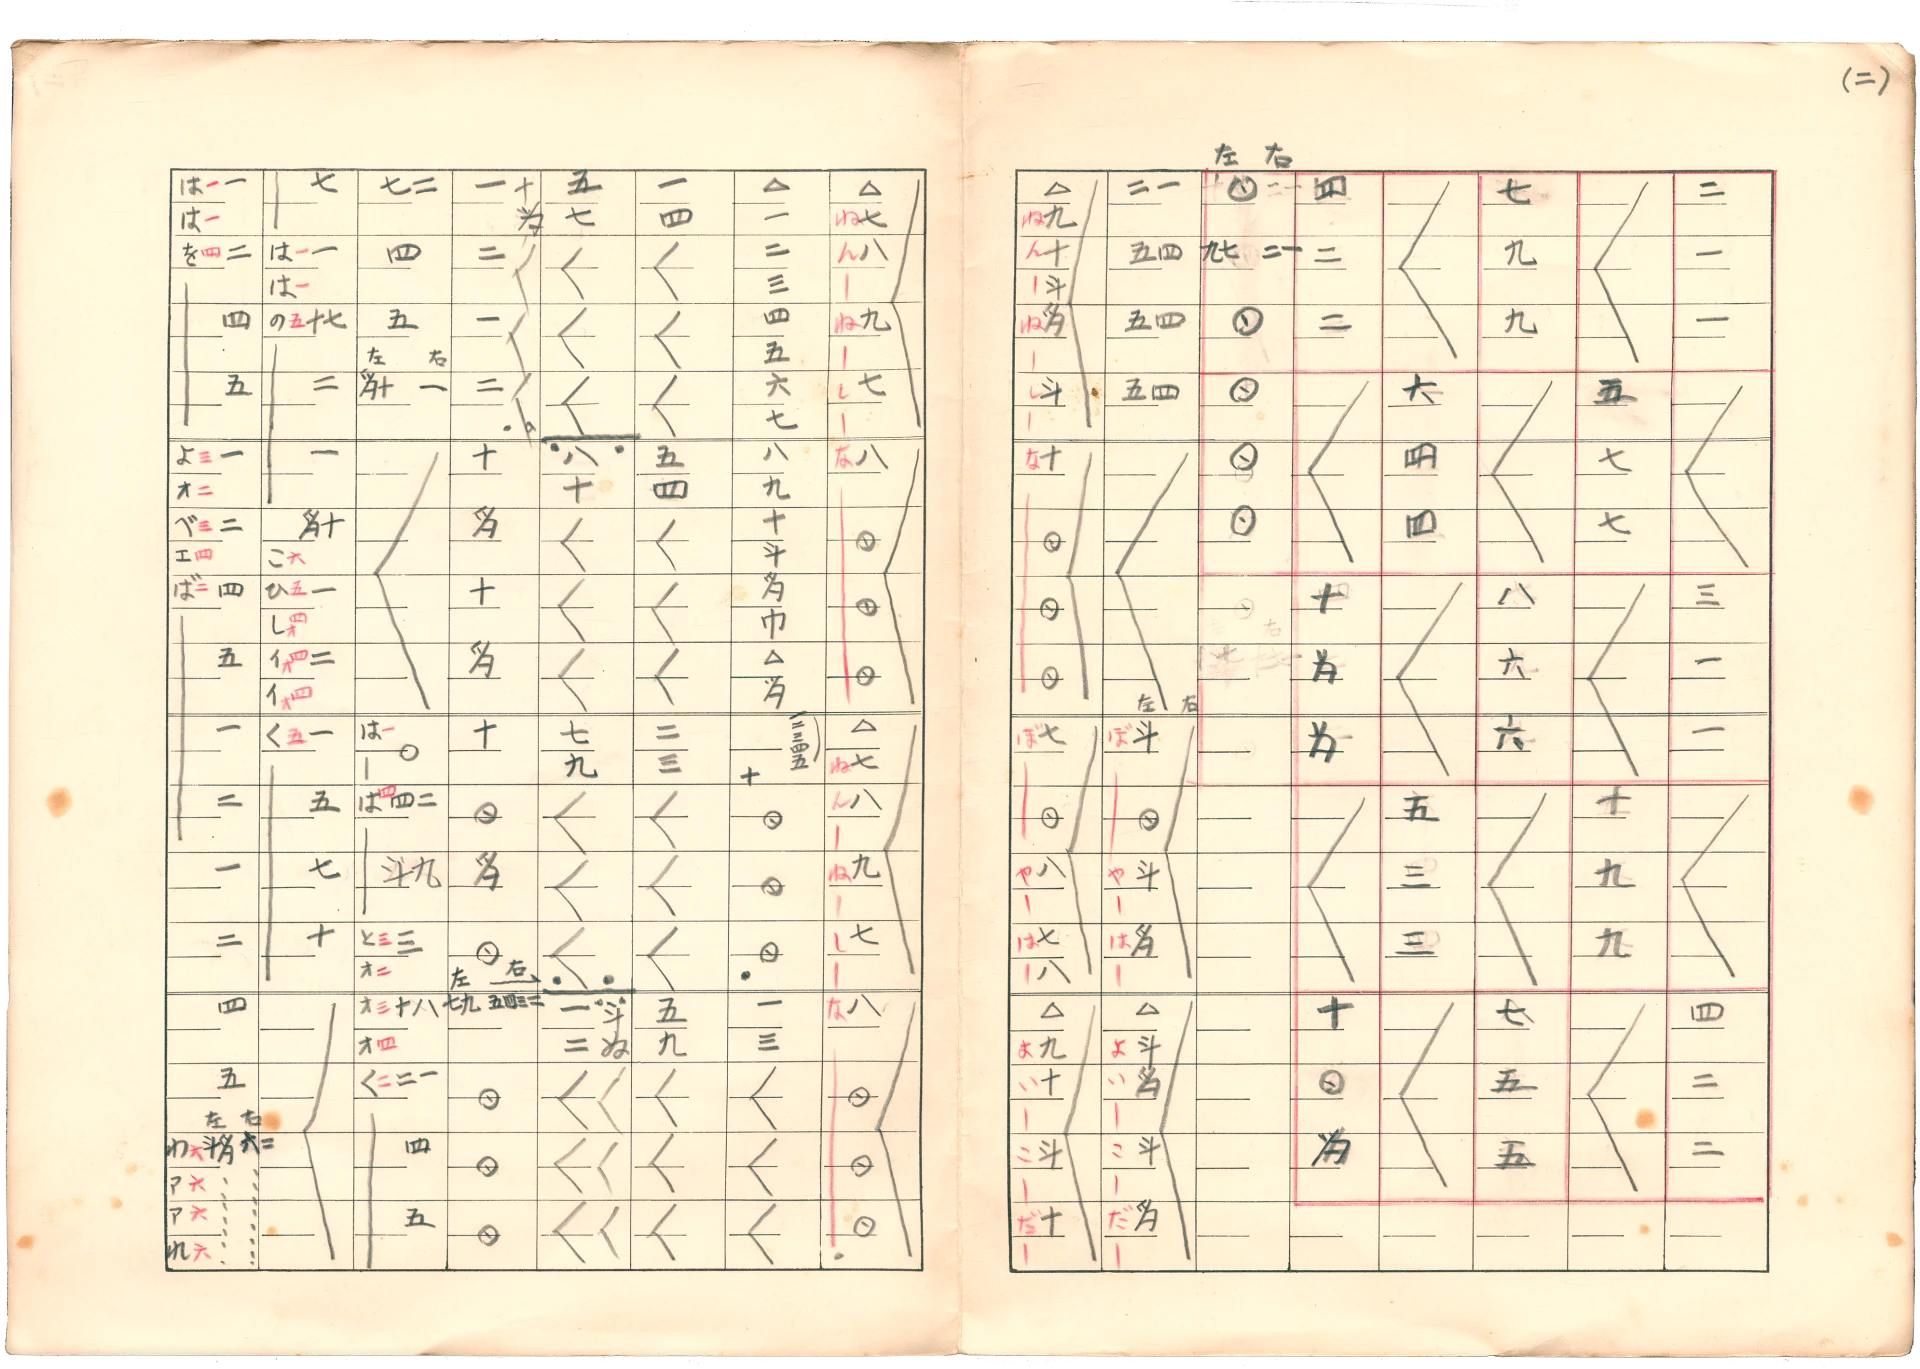 (二)
二 一 一 三 一 一 四 二 二
五 七 七 十 九 九
七 九 九 八 六 六 七 五 五
六 四 四 五 三 三
四 二 二 十 為 為 十 ⊙ 為
左 右
⊙ 九七 二一 ⊙ ⊙ ⊙ ⊙
二一 五四 五四 五四
左 右
斗 ⊙ 斗 為 △ 斗 為 斗 為
ぼ や ー は ー よ い ー こ ー だ ー
△ 九 十 斗 為 斗 十 ⊙ ⊙ ⊙ 七 ⊙ 八 七 八 △ 九 十 斗 十
ね ん ー ね ー し ー な ぼ や ー は ー よ い ー こ ー だ ー
△ 七 八 九 七 八 ⊙ ⊙ ⊙ △ 七 八 九 七 八 ⊙ ⊙ ⊙
ね ん ー ね ー し ー な ね ん ー ね ー し ー な
△ 一 二 三 四 五 六 七 八 九 十 斗 為 巾 △ 為
(一二三四五)
十 ⊙ ⊙ ⊙ 一 三
一 四 五 四 二 三 五 九
五 七 八 十 七 九 一 二
十 為
斗 ぬ
一 二 一 二 十 為 十 為 十 ⊙ 為 ⊙
左 右
七九 五四三二 ⊙ ⊙ ⊙
七二 四 五
左 右
為十 一
○ 四二 斗九 三 十八 二一 四 五
は一 ー は四 と三 オ二 オ三 オ四 く二
七 一 十七 二 一 為十 一 二 一 五 七 十
は一 は一 の五 こ六 ひ五 し四オ イ四オ イ四オ く五
一 二 四 五 一 二 四 五 一 二 一 二 四 五
左 右
斗為 六二
は一 は一 を四 よ三 オ二 べ三 エ四 ば二 わ六 ア六 ア六 れ六